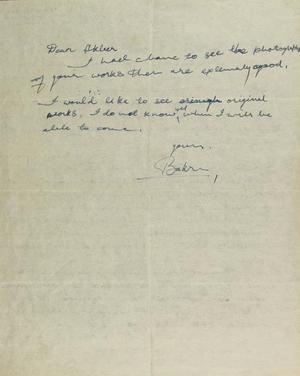 Dear Akber
I had chance to see the photographs
of your works they are extremely good.
I would like to see enough original
works. I do not know yet, when I will be
able to come.
yours.
Bakre